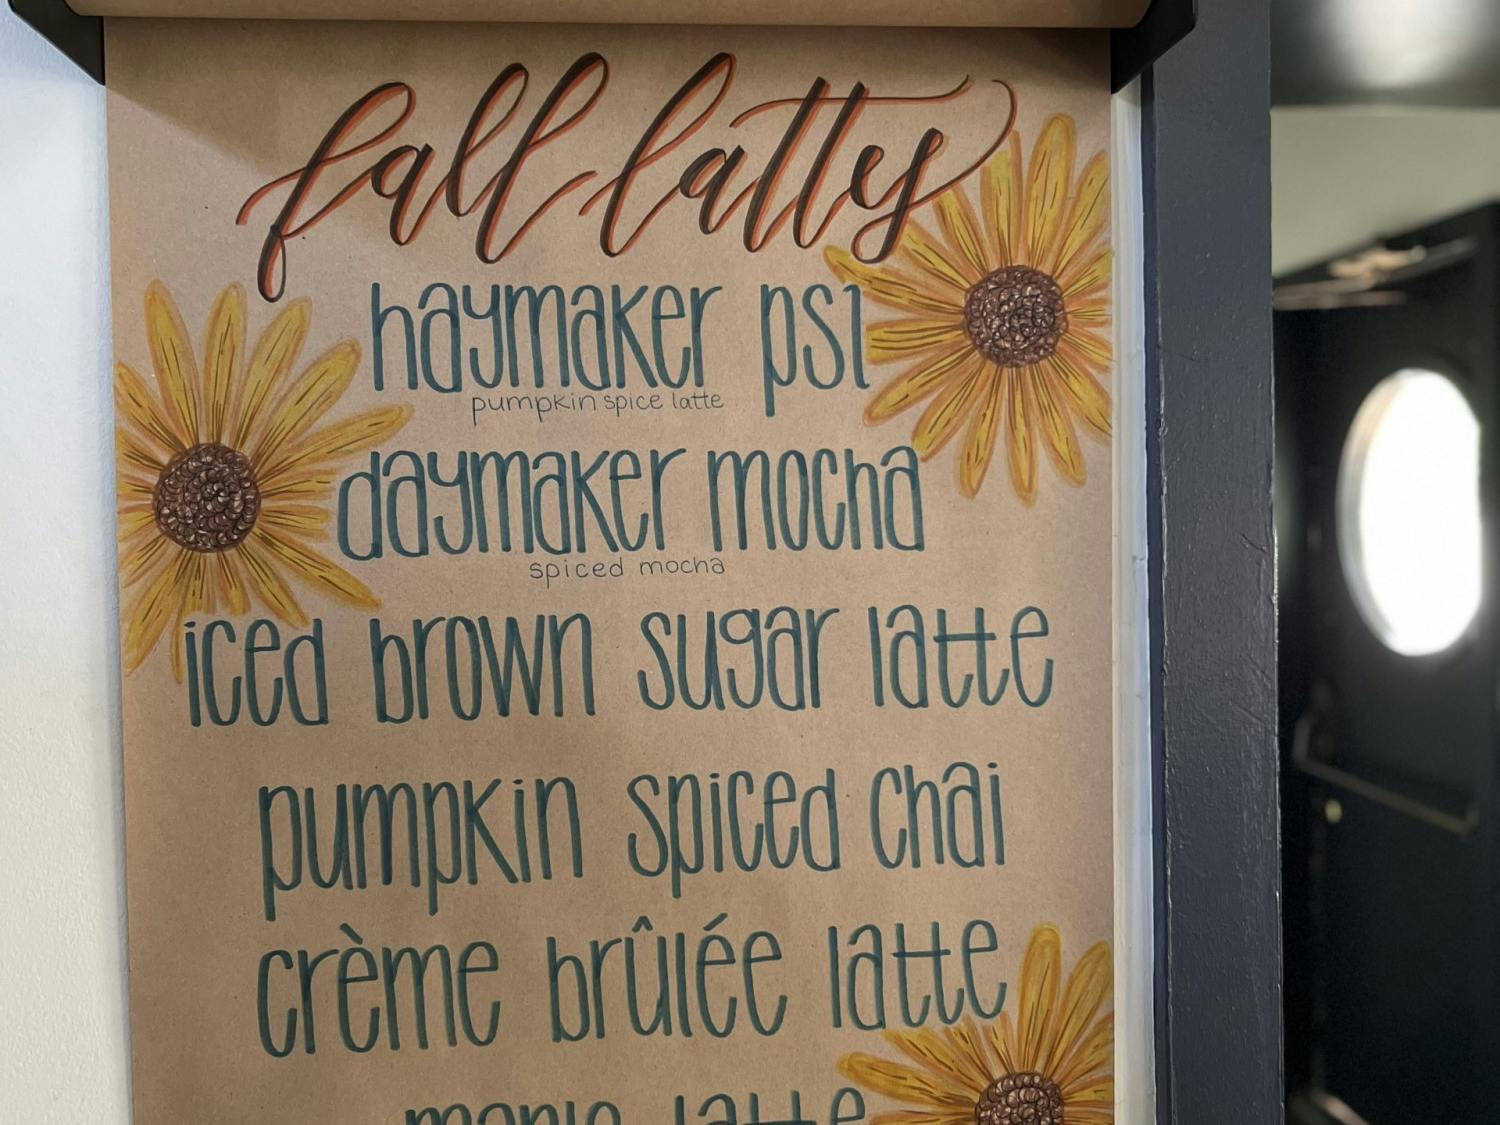 fall lattys
haymaker psl
pumpkin spice latte
daymaker mocha
spiced mocha
iced brown sugar latte
pumpkin spiced chai
crème brûlée latte
maple latte